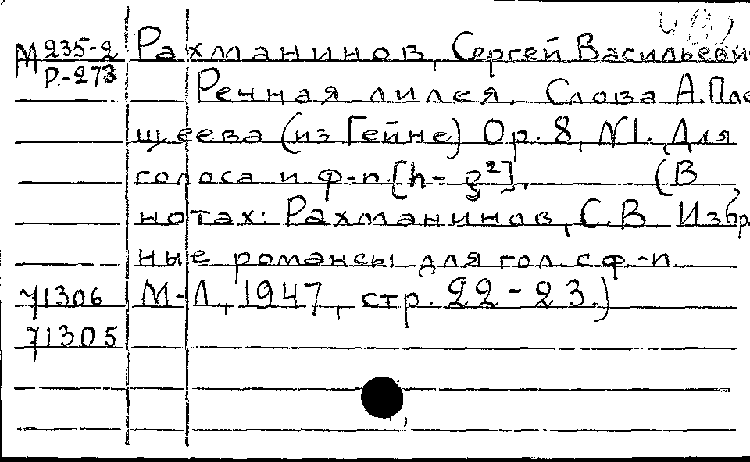 М 235-2 Рахманинов, Сергей Васильеви
Р-273 Речная лилея. Слова А.Пле
щеева (из Гейне) Op. 8, N1. Для
голоса и ф-п. [h-g²]. (В
нотах: Рахманинов, С.В. Избр
ные романсы для гол. с ф.-п.
71306 М-Л, 1947, стр. 22-23.)
71305